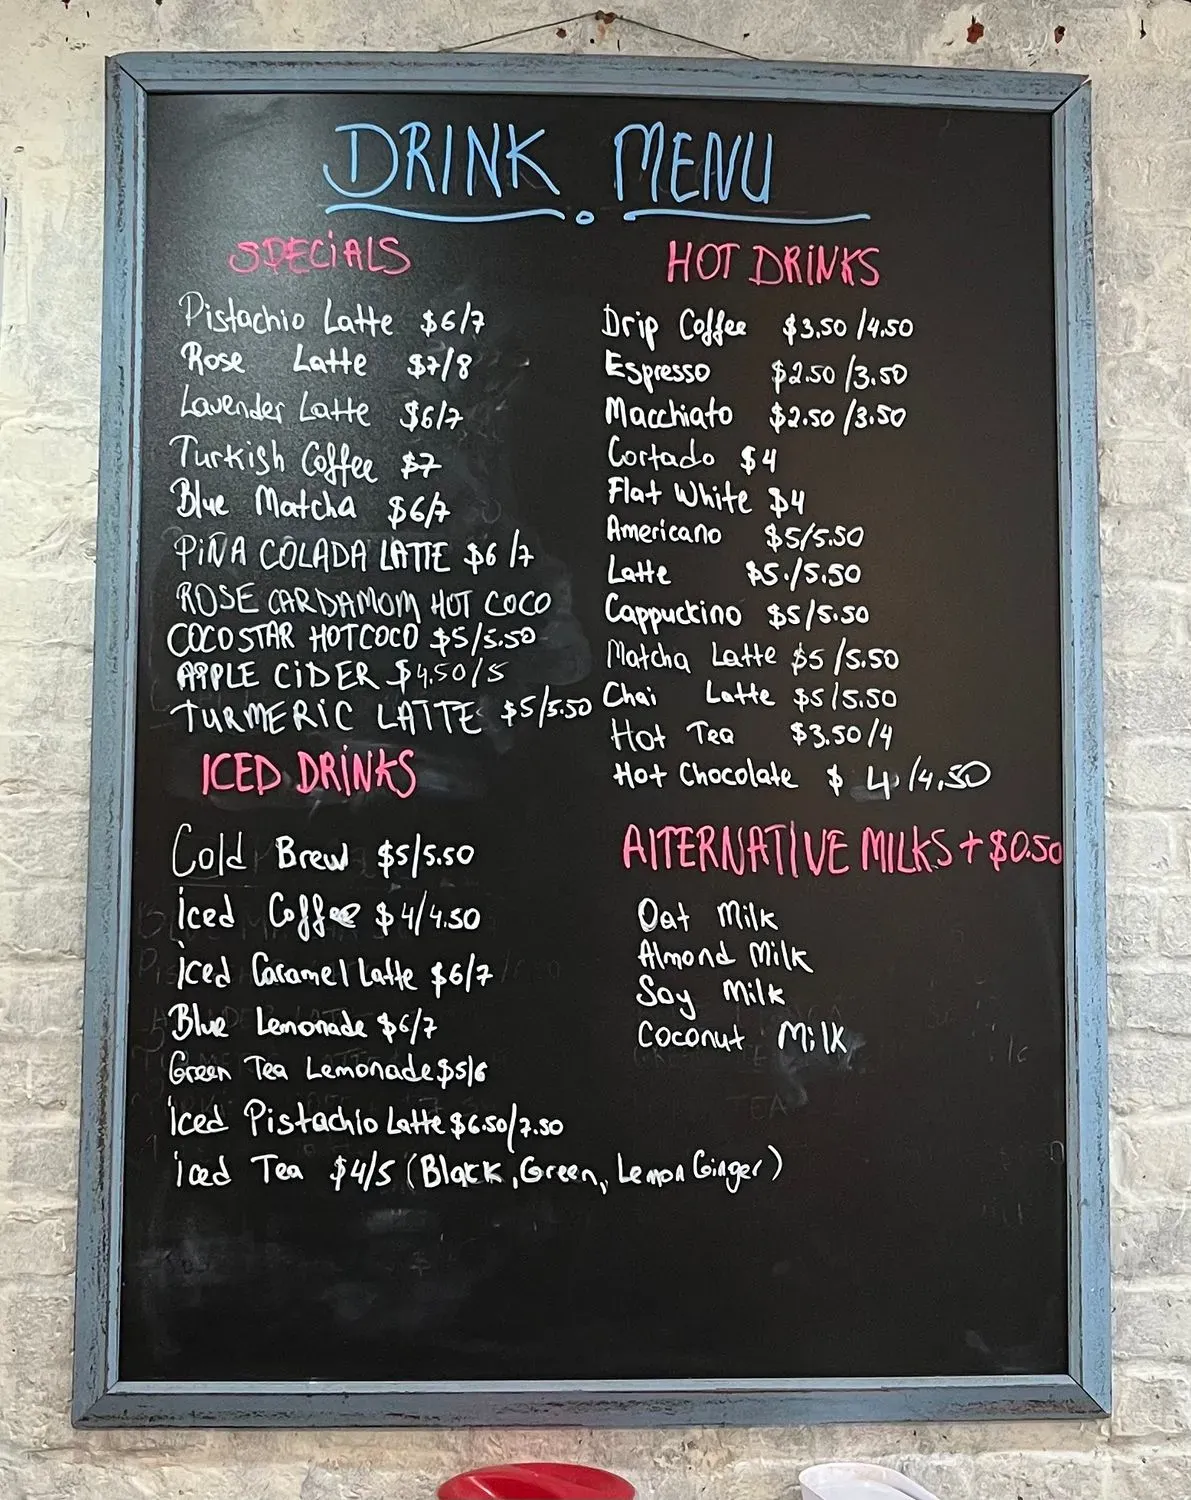 DRINK MENU
SPECIALS
Pistachio Latte $6/7
Rose Latte $7/8
Lavender Latte $6/7
Turkish Coffee $7
Blue Matcha $6/7
PIÑA COLADA LATTE $6/7
ROSE CARDAMOM HOT COCO
COCOSTAR HOTCOCO $5/5.50
APPLE CIDER $4.50/5
TURMERIC LATTE $5/5.50
ICED DRINKS
Cold Brew $5/5.50
Iced Coffee $4/4.50
Iced Caramel Latte $6/7
Blue Lemonade $6/7
Green Tea Lemonade $5/6
Iced Pistachio Latte $6.50/7.50
Iced Tea $4/5 (Black, Green, Lemon Ginger)
HOT DRINKS
Drip Coffee $3.50/4.50
Espresso $2.50/3.50
Macchiato $2.50/3.50
Cortado $4
Flat White $4
Americano $5/5.50
Latte $5./5.50
Cappuccino $5/5.50
Matcha Latte $5/5.50
Chai Latte $5/5.50
Hot Tea $3.50/4
Hot Chocolate $4./4.50
AlTERNATIVE MILKS + $0.50
Oat Milk
Almond Milk
Soy Milk
Coconut Milk